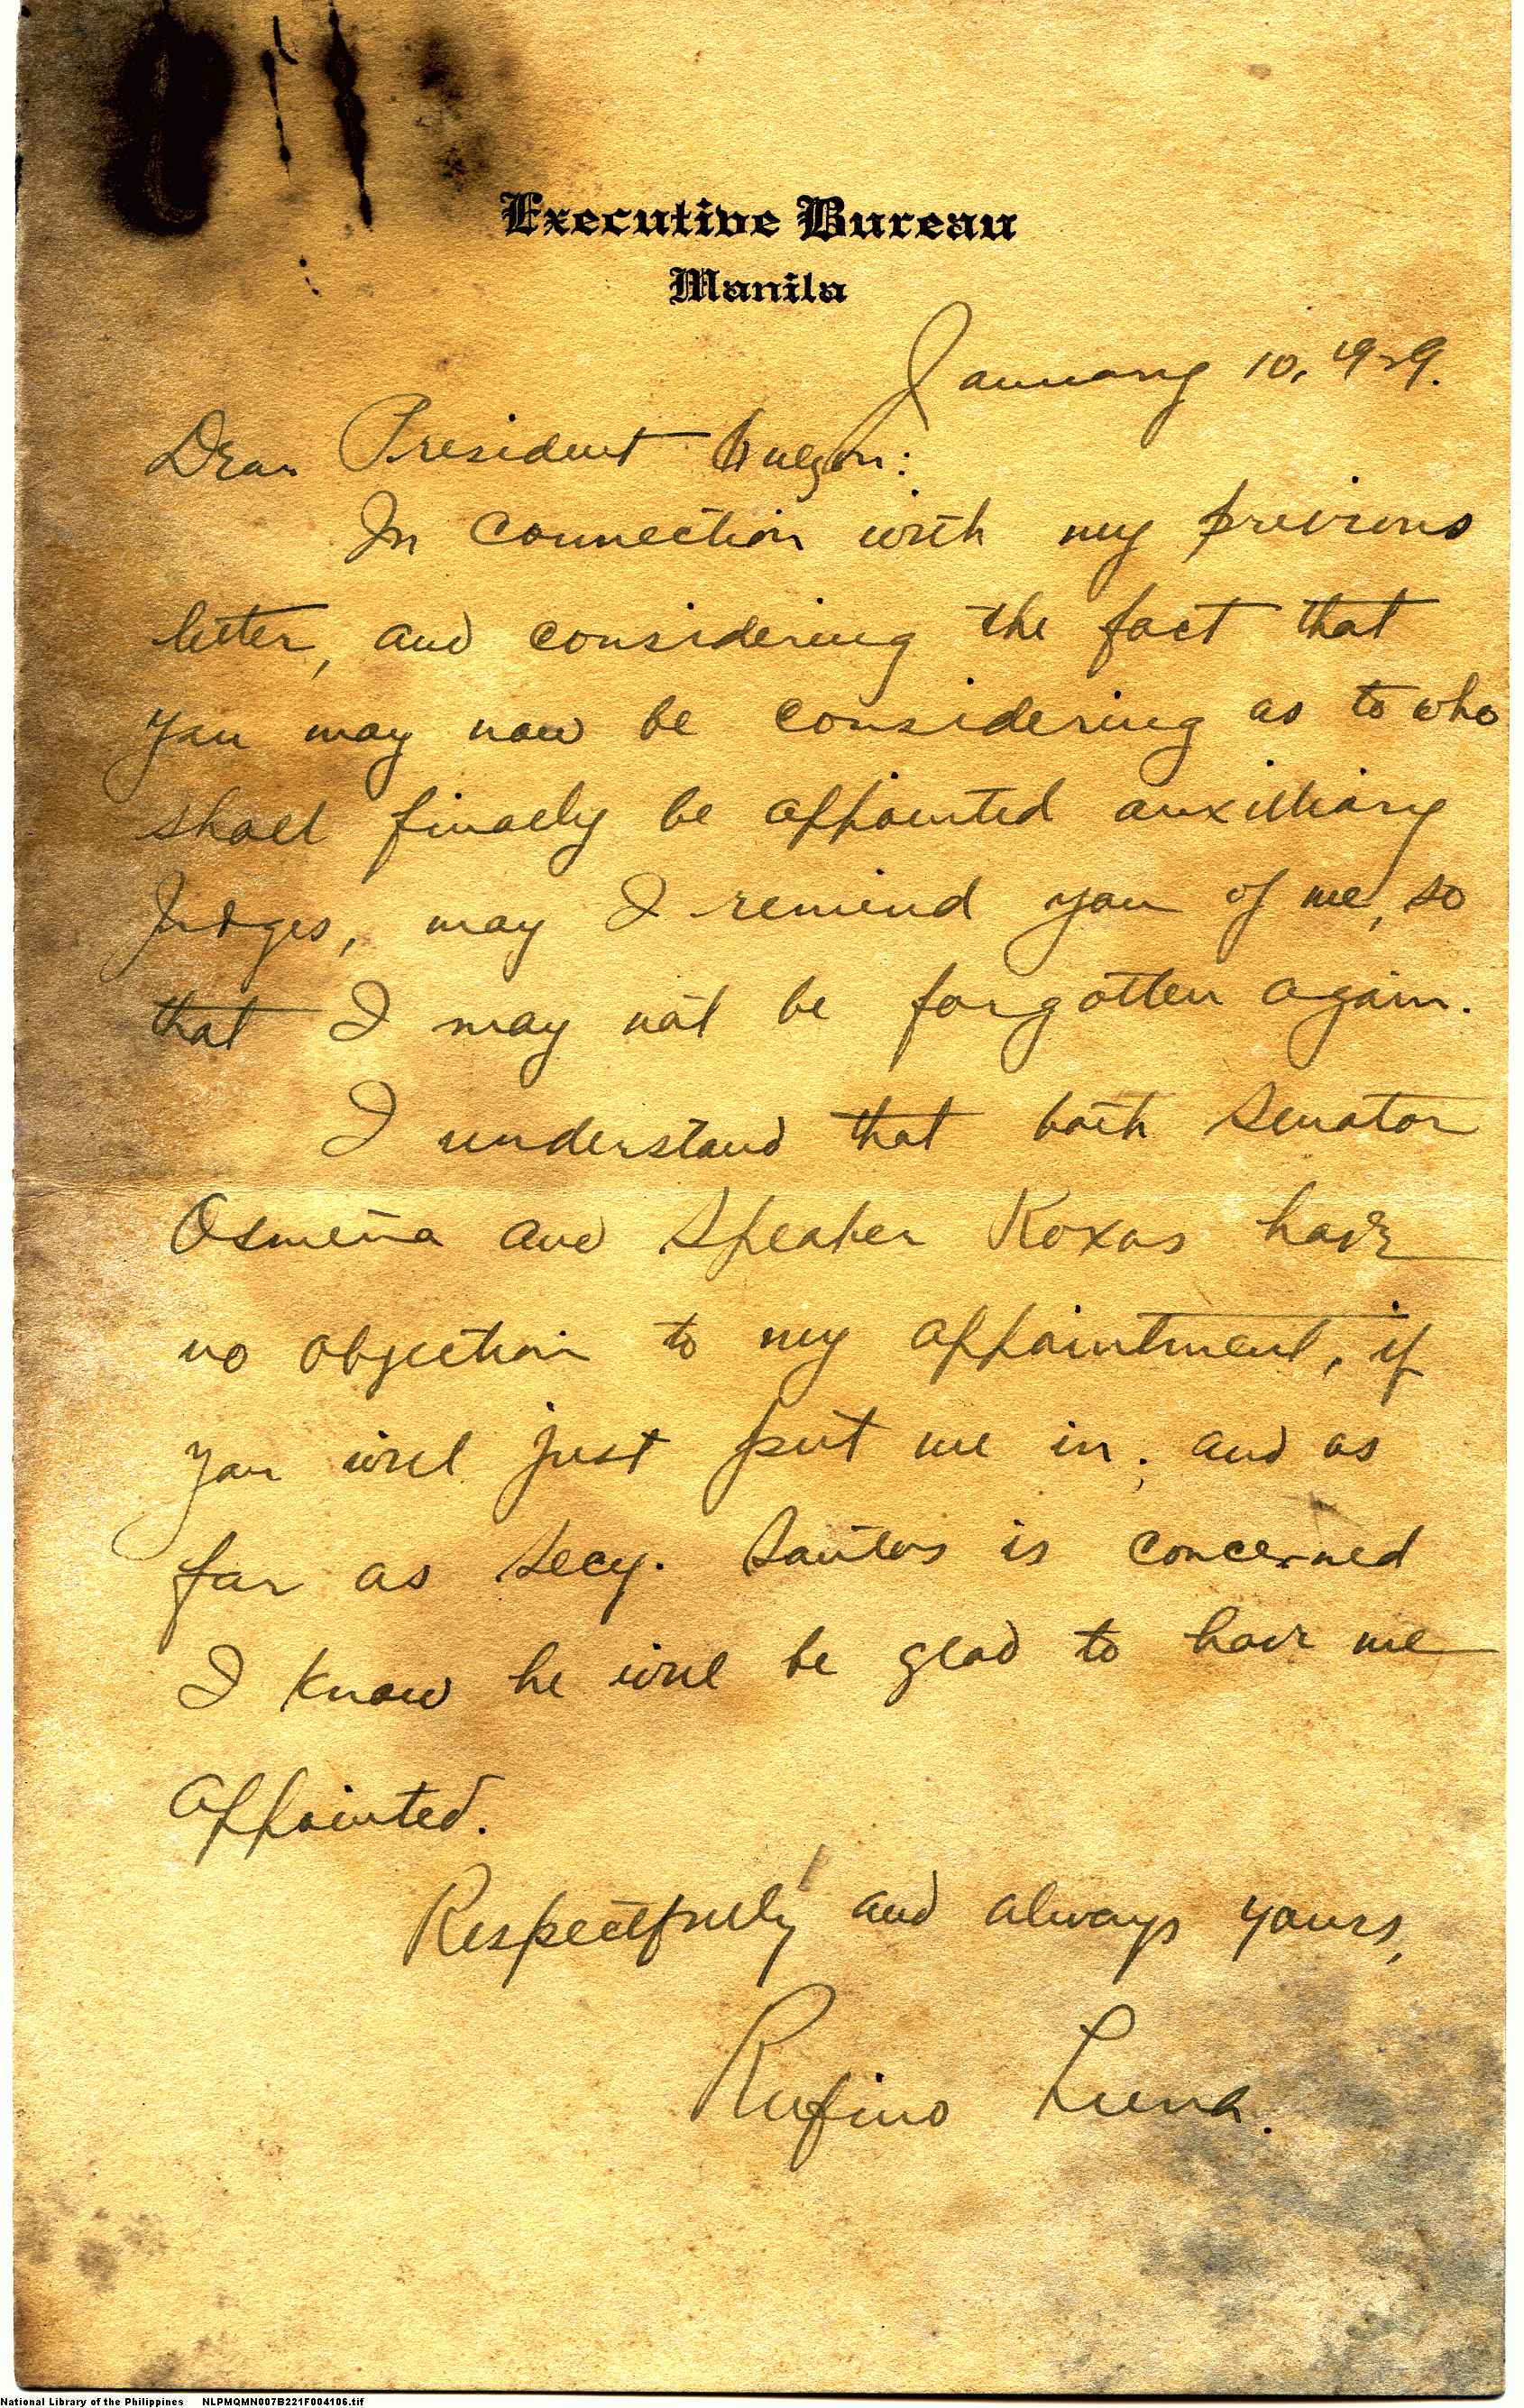 Executive Bureau
Manila
January 10, 1929.
Dear President Quezon:
In connection with my previous
letter, and considering the fact that
you may now be considering as to who
shall finally be appointed auxilliary
Judges, may I remind you of me, so
that I may not be forgotten again.
I understand that both Senator
Osmeña and Speaker Roxas have
no objection to my appointment, if
you will just put me in; and as
far as Secy. Santos is concerned
I know he will be glad to have me
appointed.
Respectfully and always yours,
Rufino Luna.
National Library of the Philippines NLPMQMN007B221F004106.tif